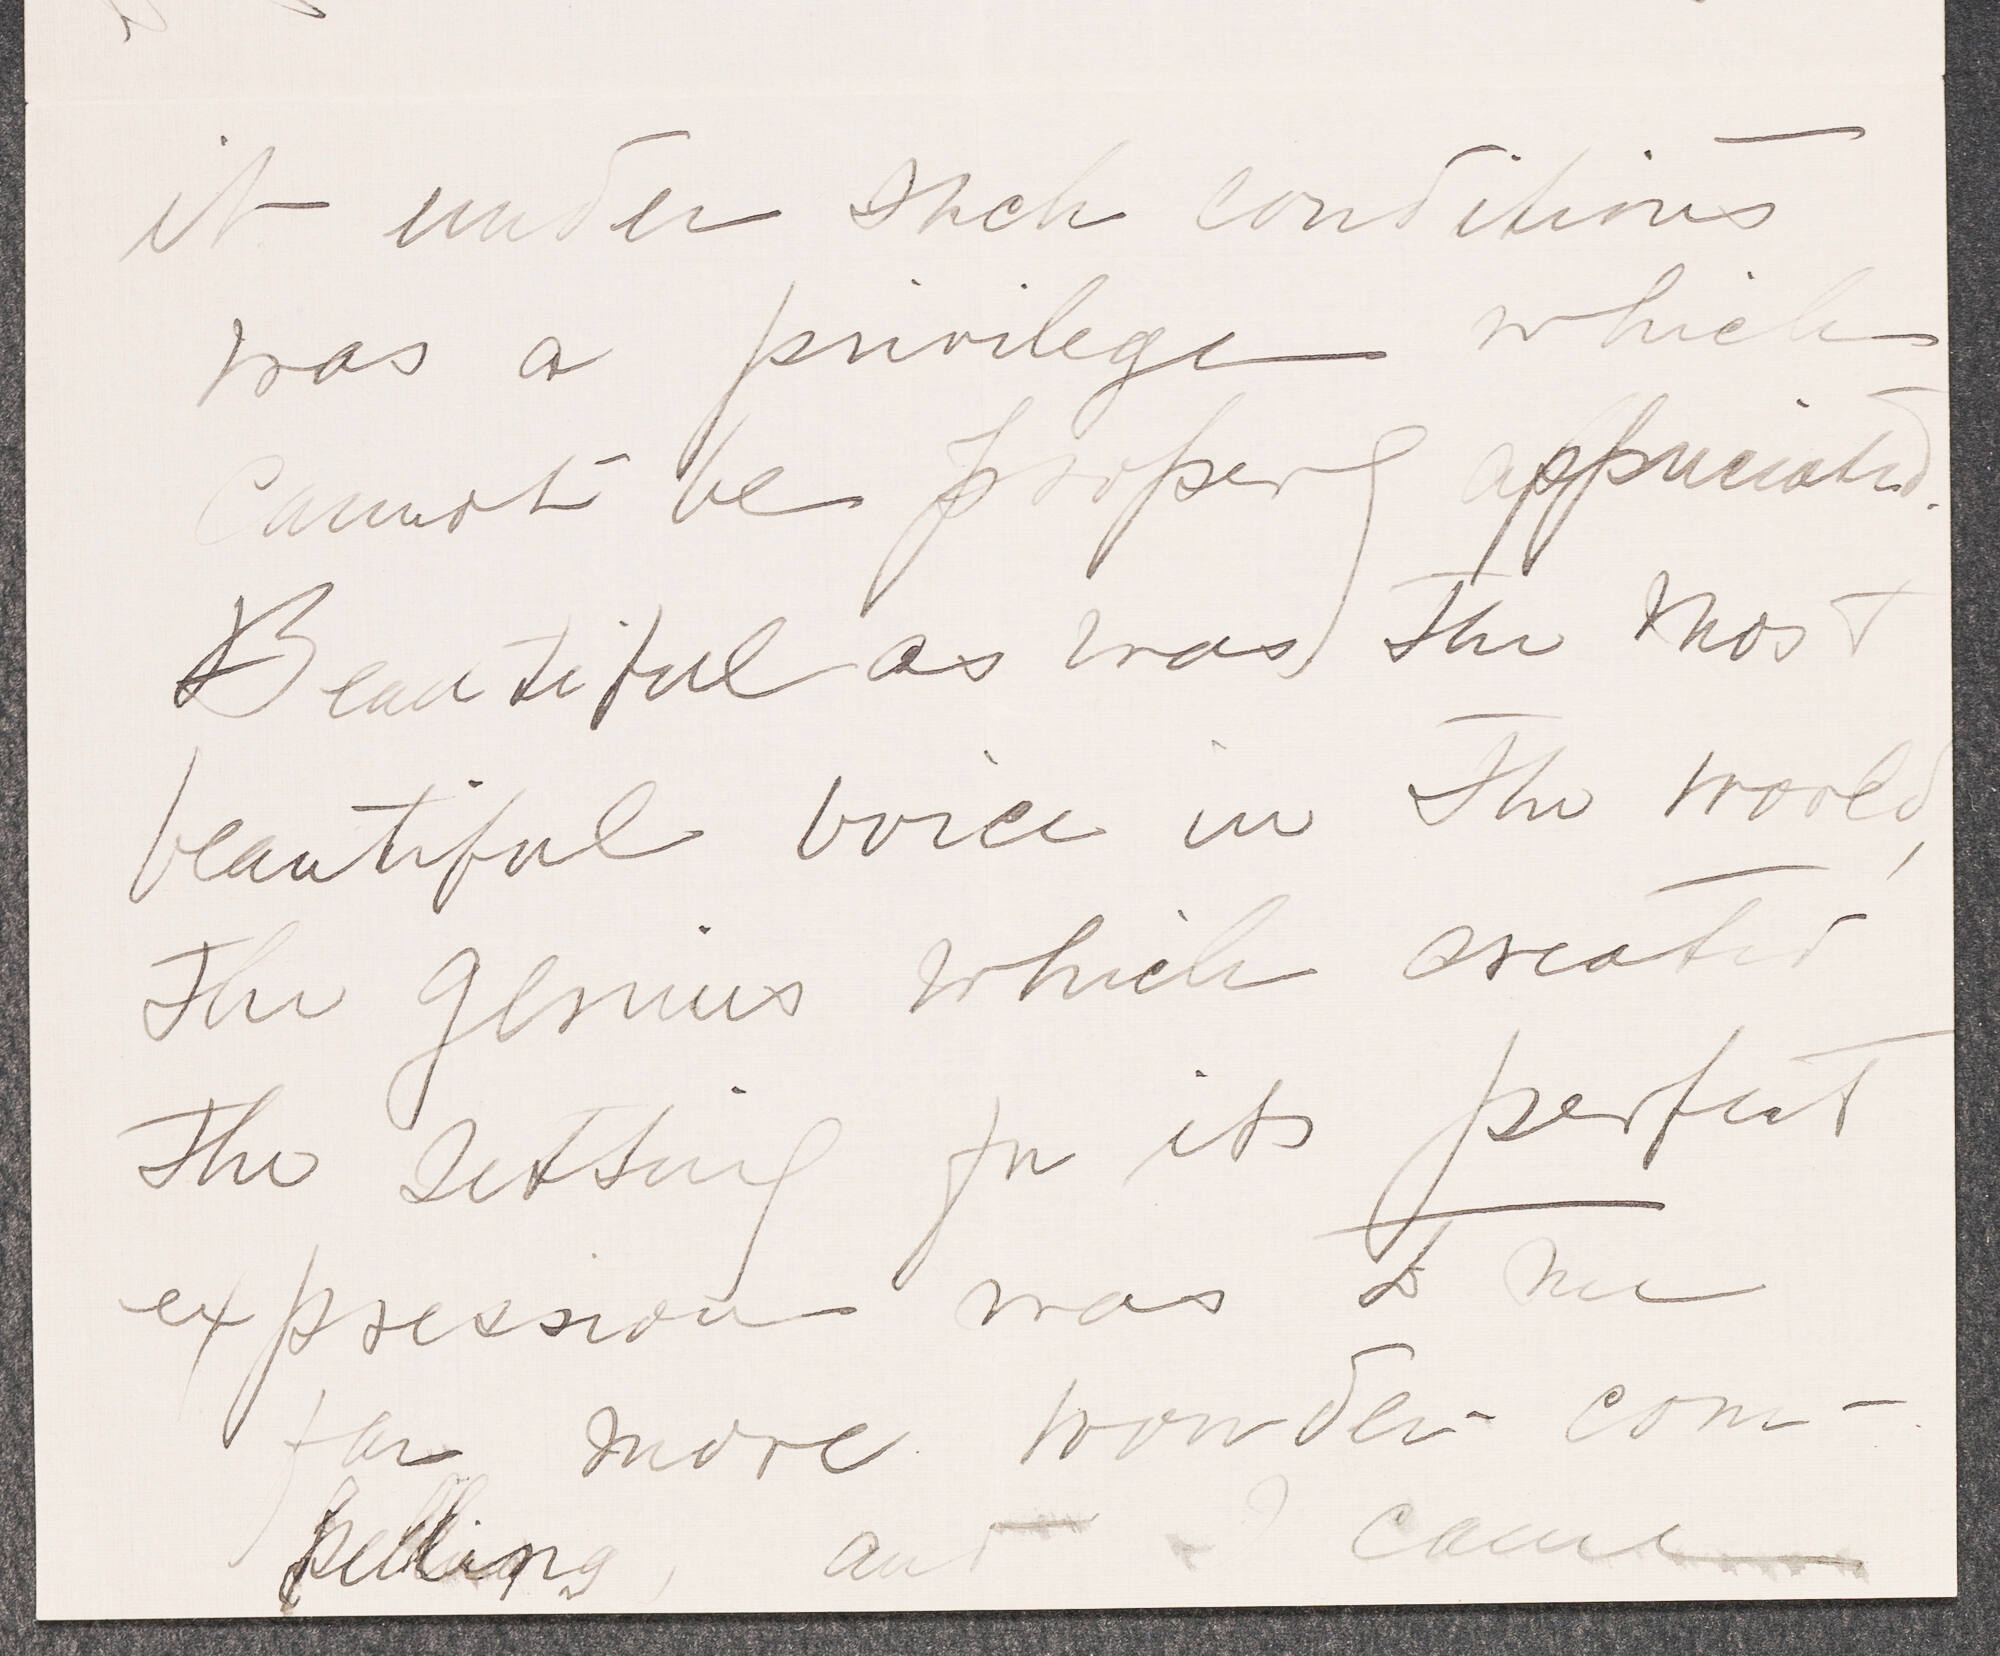 it under such conditions
was a privilege which
cannot be properly appreciated.
Beautiful as was the most
beautiful voice in the world,
the genius which created
the setting for its perfect
expression was to me
far more wonder-com-
pelling, and I came